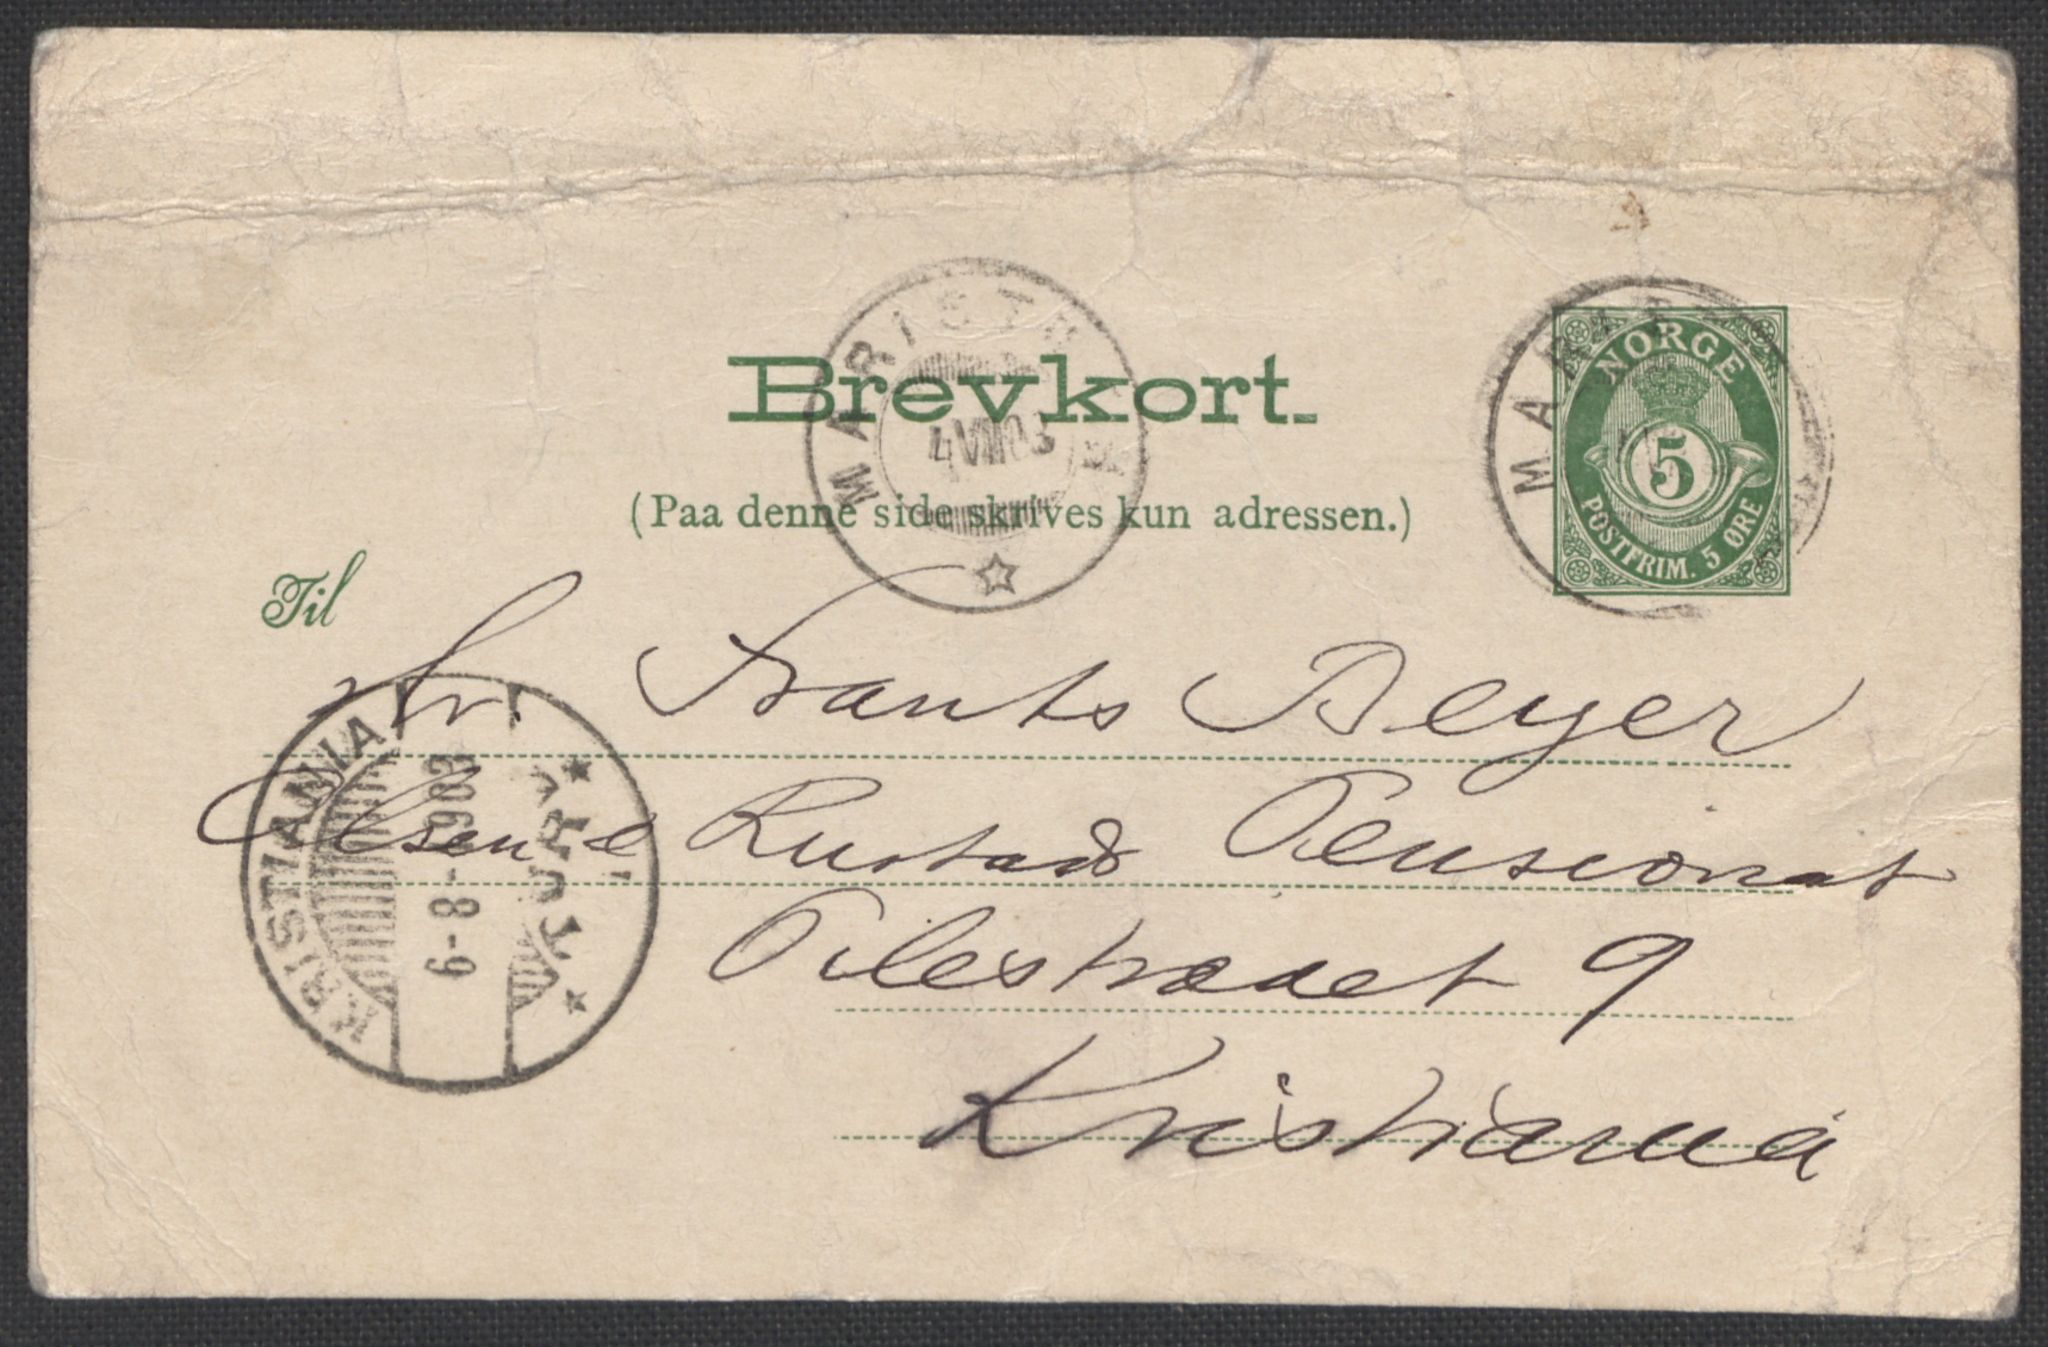 MARISTU
4 VIII 03
Brevkort.
(Paa denne side skrives kun adressen.)
NORGE
5
POSTFRIM. 5 ØRE
Til
Hr. Frants Beyer
Olsen & Rustads Pensionat
Pilestrædet 9
Kristiania
KRISTIANIA
6-8-03
TUR